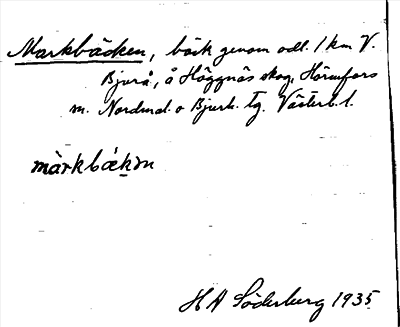 Markbäcken, bäck genom odl. 1 km V.
Bjurå, å Häggnäs skog, Hörnefors
m. Nordmal. o Bjurh. tg. Västerb. l.
màrkbák̲m
H A Söderberg 1935